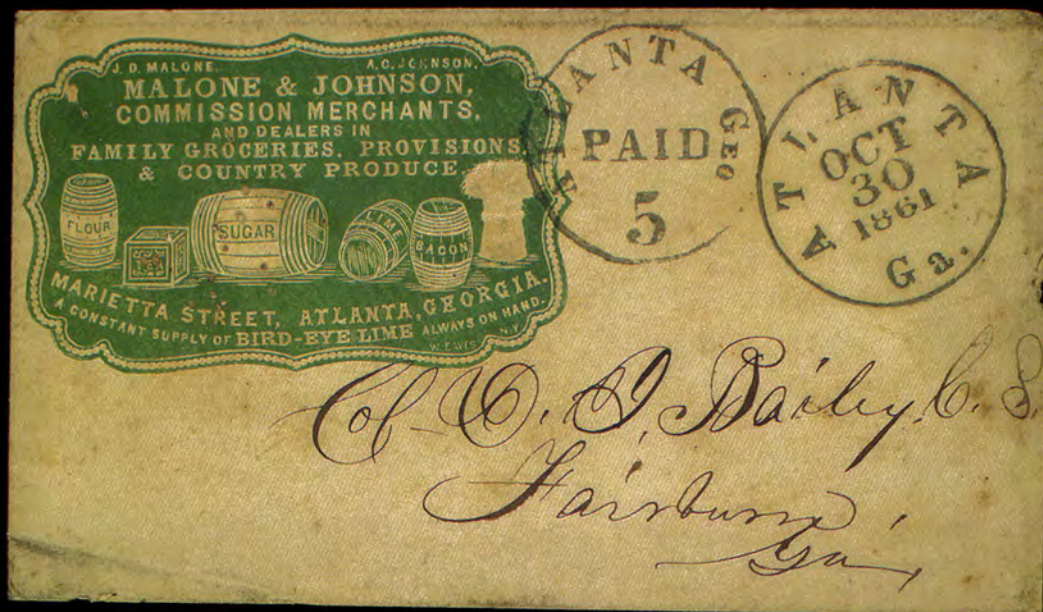 J. D. MALONE. A. C. JOHNSON.
MALONE & JOHNSON,
COMMISSION MERCHANTS,
AND DEALERS IN
FAMILY GROCERIES, PROVISIONS
& COUNTRY PRODUCE.
FLOUR
SUGAR
LIME
BACON
MARIETTA STREET, ATLANTA, GEORGIA.
A CONSTANT SUPPLY OF BIRD-EYE LIME ALWAYS ON HAND.
N.Y.
ATLANTA GEO
PAID
5
ATLANTA
OCT
30
1861
Ga.
Col D. I. Bailey, C. S.
Fairburn,
Ga,